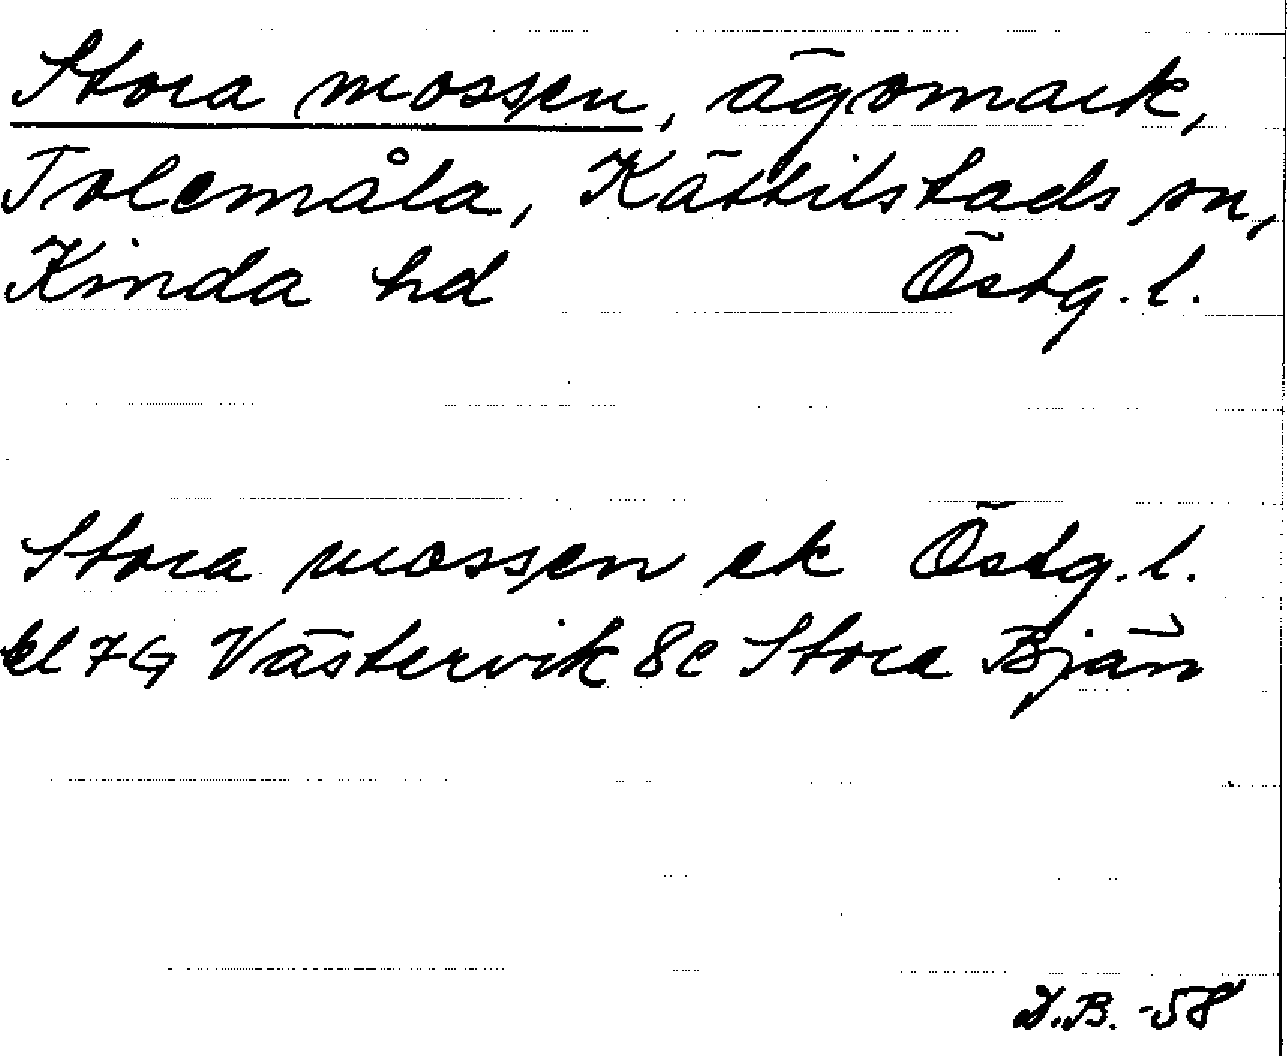 Stora mossen, ägomark,
Tolemåla, Kättilstads sn,
Kinda hd Östg. l.
Stora mossen ek Östg. l.
bl 7G Västervik 8c Stora Bjän
D.B. -58